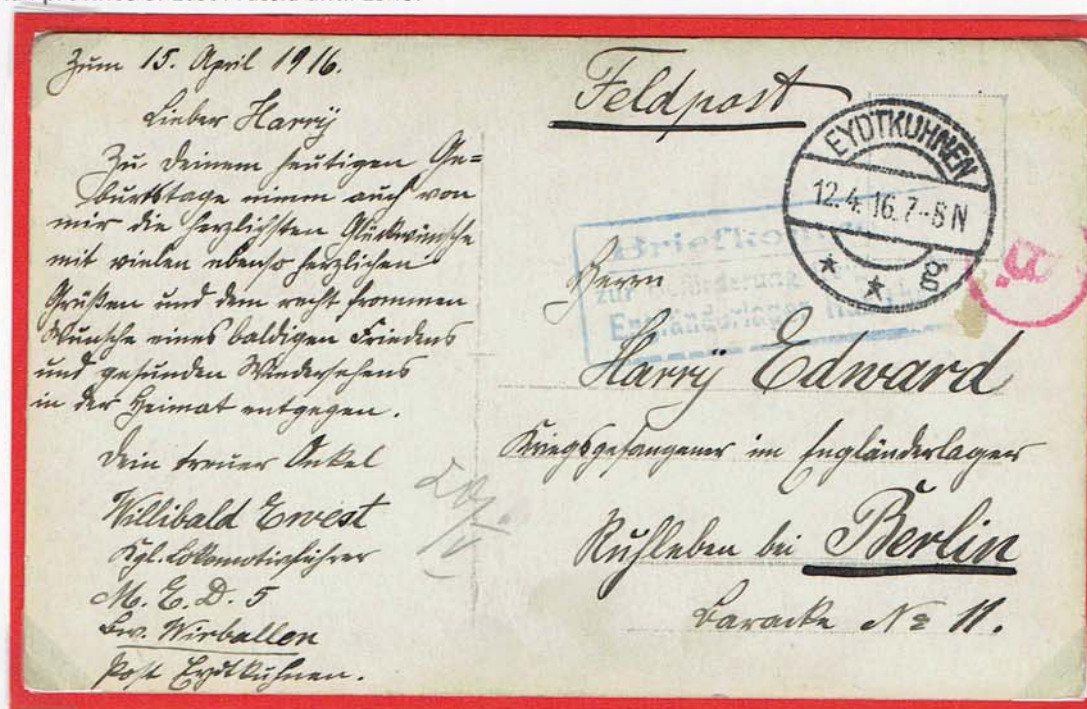 Zum 15. April 1916.
Lieber Harrÿ
Zu Deinem heutigen Ge=
burtstage nimm auch von
mir die herzlichsten Glückwünsche
mit vielen ebenso herzlichen
Grüßen und dem recht frommen
Wunsche eines baldigen Friedens
und gesunden Wiedersehens
in der Heimat entgegen.
Dein treuer Onkel
Willibald Ewest
Kgl. Lokomotivführer
M. E. D. 5
Bw. Wirballen
Post Eydtkuhnen.
Feldpost
EYDTKUHNEN
12.4.16.7-8N
* * g
zur Beförderung
Engländerlager
Herrn
Harrÿ Edward
Kriegsgefangener im Engländerlager
Ruhleben bei Berlin
Baracke No 11.